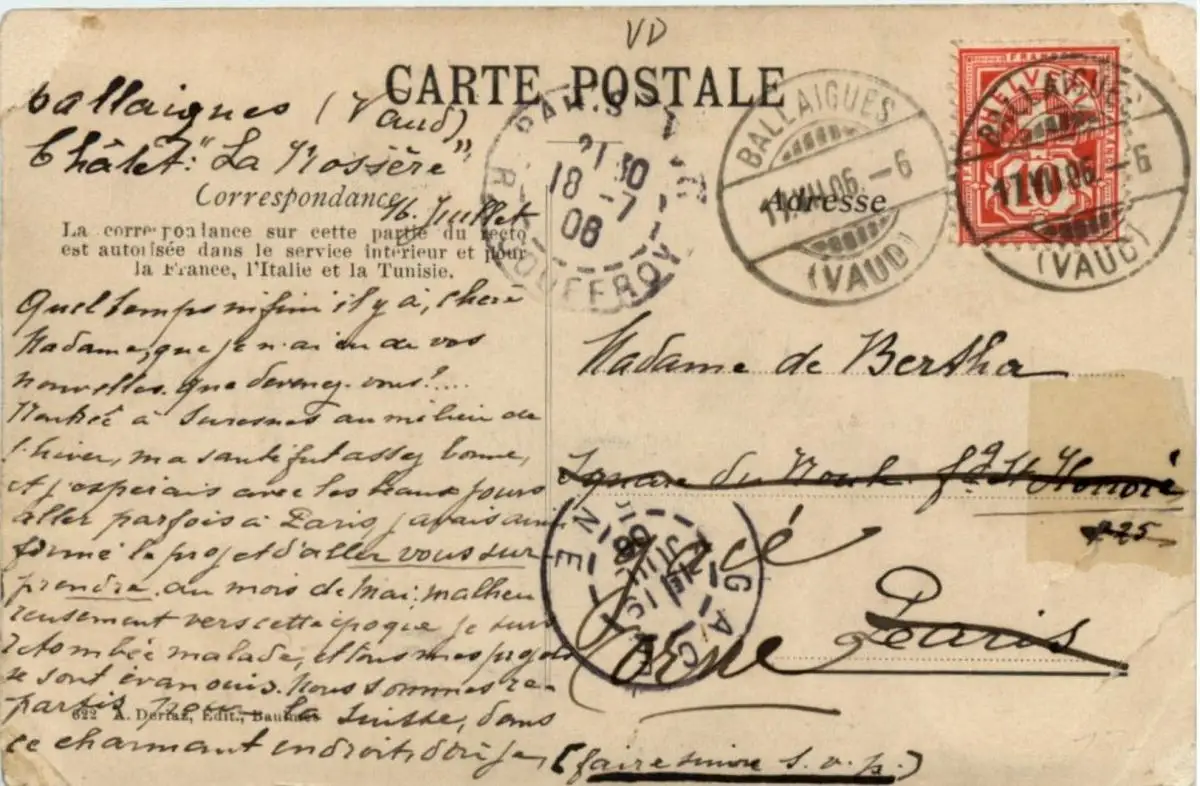 VD
CARTE POSTALE
Ballaigues (Vaud)
Châlèt: "La Rossère",
Correspondance
16. Juillet
La correspondance sur cette partie du recto
est autorisée dans le service intérieur et pour
la France, l'Italie et la Tunisie.
Quel temps infini il y à, chère
Madame, que je n'ai eu de vos
nouvelles. que devenez-vous?....
Rentrée à Suresnes au milieu de
l'hiver, ma santé fut assez bonne,
et j'espérais avec les beaux jours
aller parfois à Paris, j'avais ainsi
formé le projet d'aller vous sur
prendre, au mois de Mai; malheu
reusement vers cette époque je suis
retombée malade, et tous mes projets
se sont évanouis. Nous sommes re-
partis pour la Suisse, dans
ce charmant endroit, d'où je,
622 A. Dériaz, Edit., Baulmes
PARIS
21 30
18 -7
06
R. JOUFFROY
BALLAIGUES
17.VII.06.-6
(VAUD)
HELVETIA
FRANCO
10
BALLAIGUES
17.VII.06.-6
(VAUD)
Adresse
Madame de Bertha
Square du Roule fg St Honoré
225
Paris
Gacé
Orne
GACÉ
ORNE
(faire suivre s.v.p.)